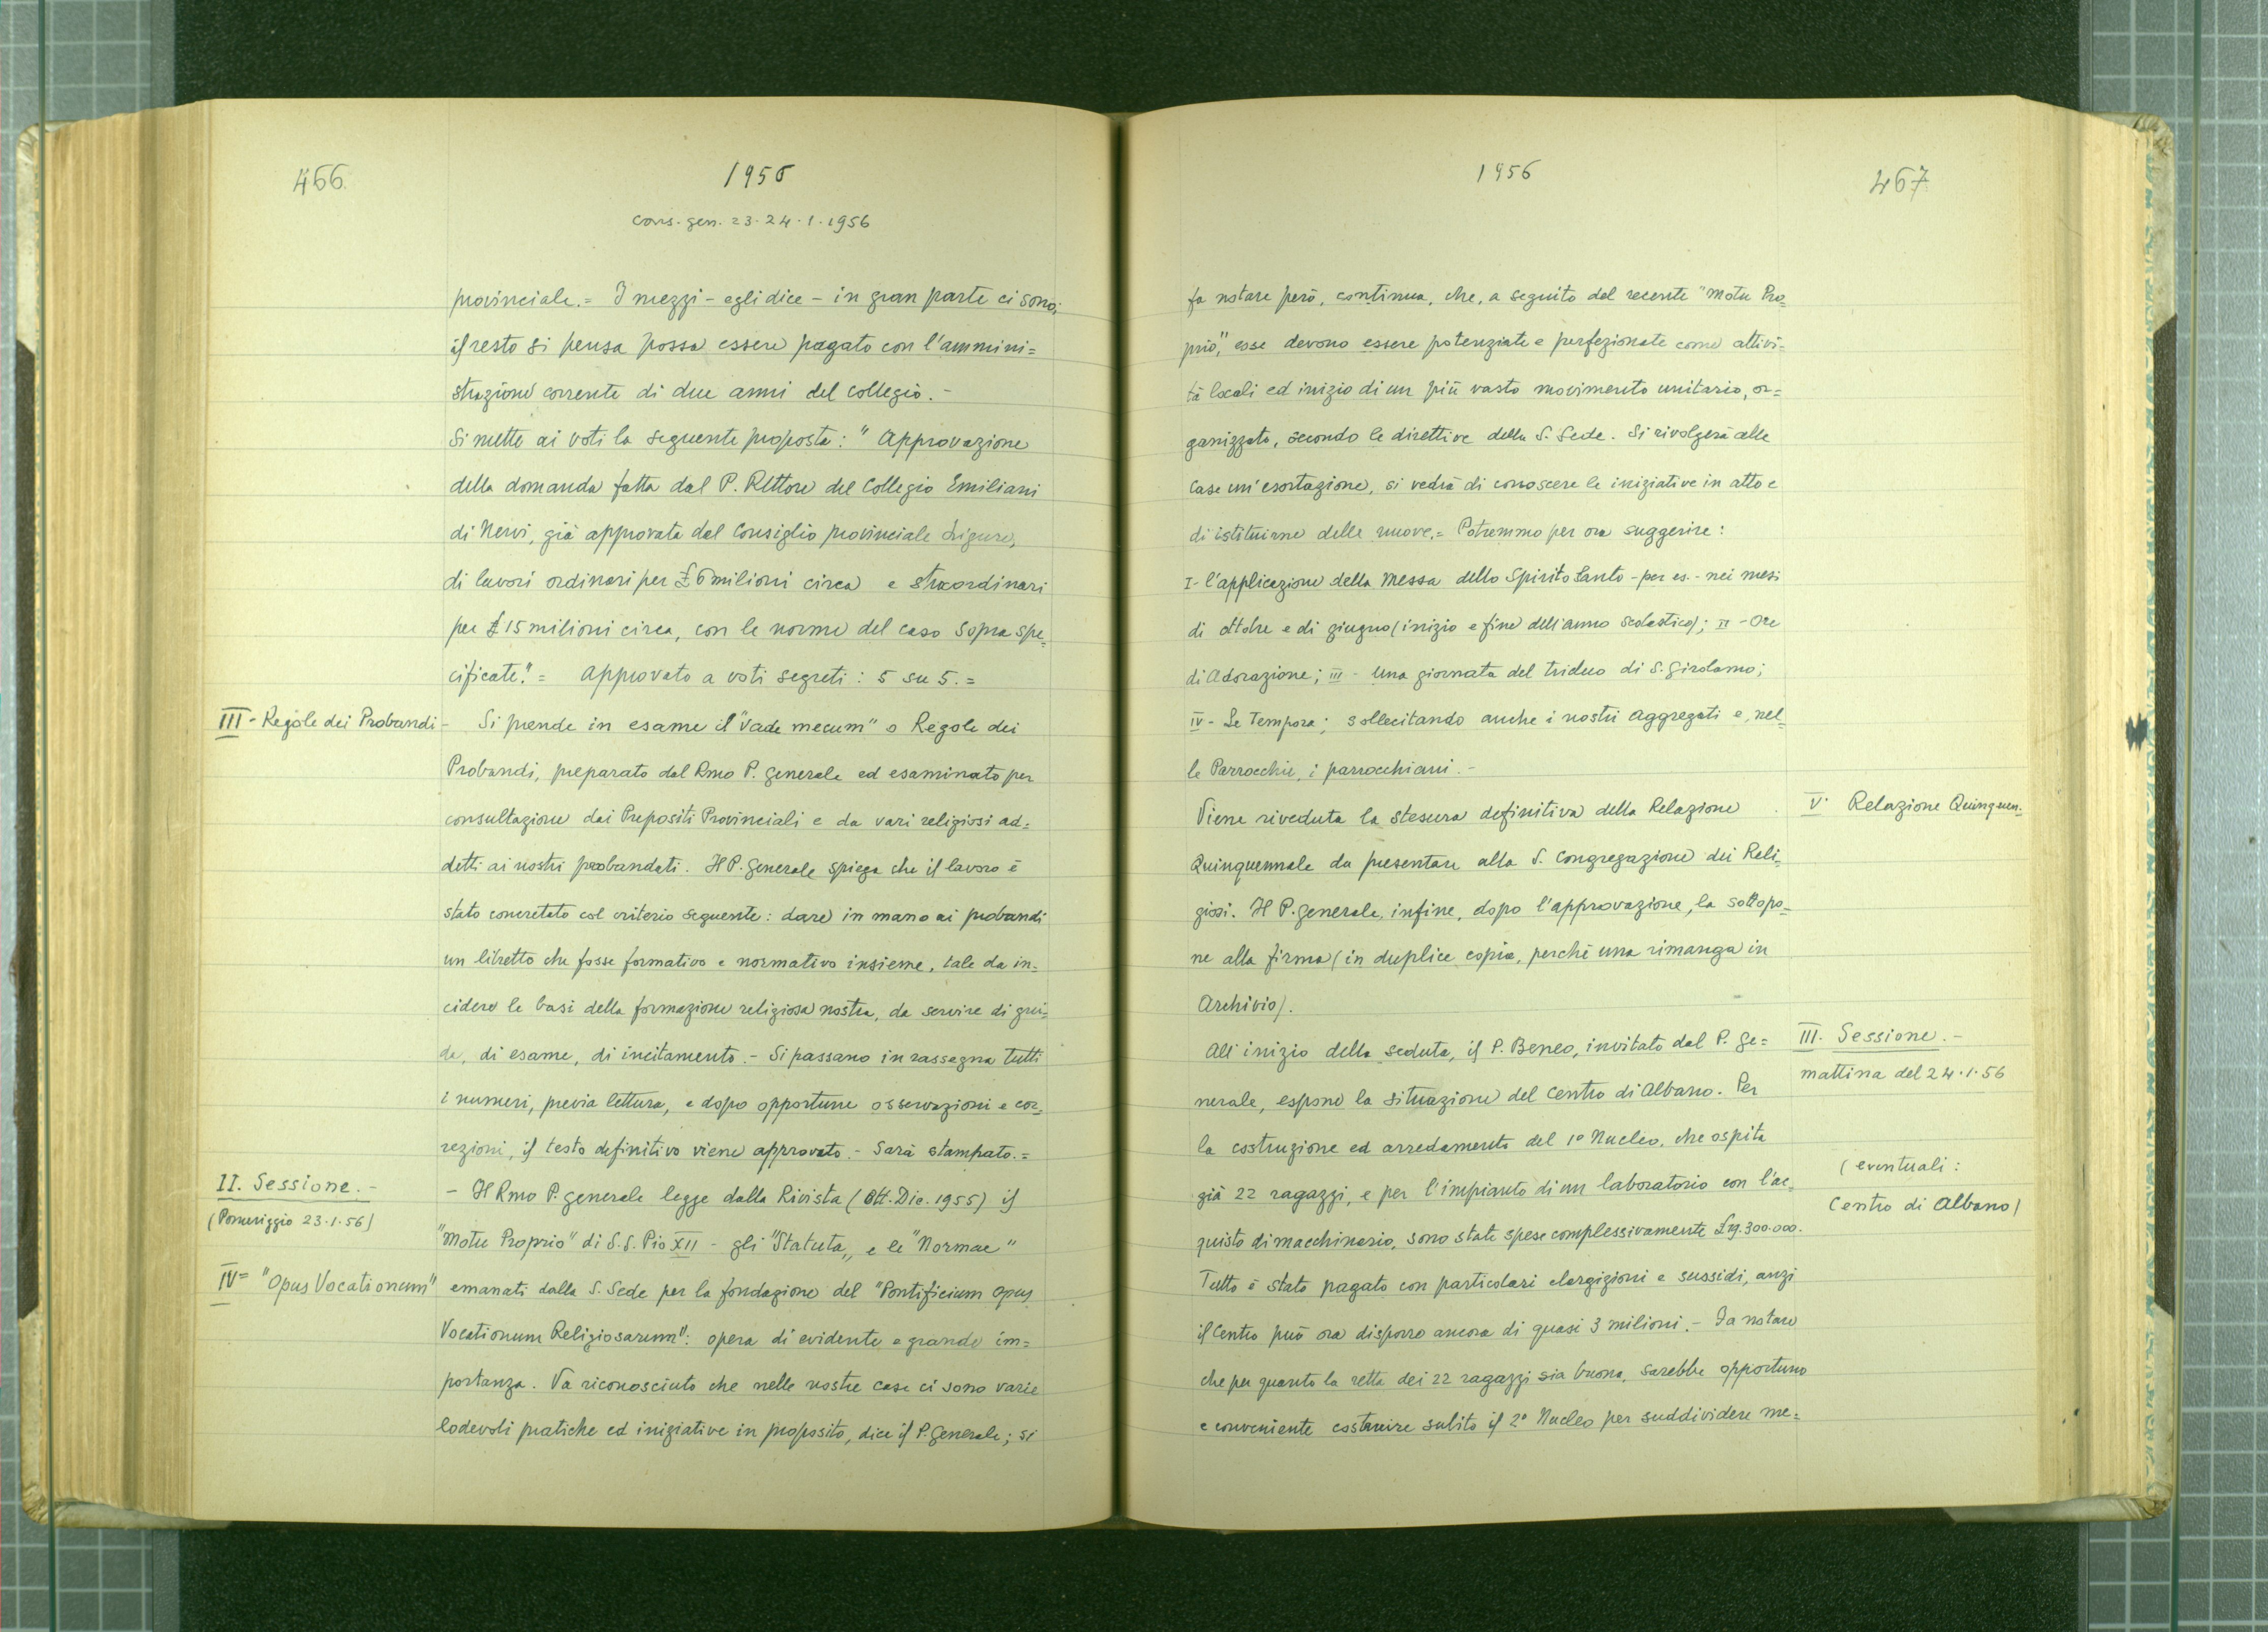 466.
1956
Cons. gen. 23-24.1.1956
provinciale. = I mezzi - egli dice - in gran parte ci sono;
il resto si pensa possa essere pagato con l'ammini=
strazione corrente di due anni del collegio. -
Si mette ai voti la seguente proposta: "Approvazione
della domanda fatta dal P. Rettore del Collegio Emiliani
di Nervi, già approvata dal Consiglio provinciale Ligure,
di lavori ordinari per £ 6 milioni circa e straordinari
per £ 15 milioni circa, con le norme del caso sopra spe=
cificate." = Approvato a voti segreti: 5 su 5. =
III - Regole dei Probandi - Si prende in esame il "Vade mecum" o Regole dei
Probandi, preparato dal Rmo P. Generale ed esaminato per
consultazione dai Prepositi Provinciali e da vari religiosi ad=
detti ai nostri probandati. Il P. Generale spiega che il lavoro è
stato concretato col criterio seguente: dare in mano ai probandi
un libretto che fosse formativo e normativo insieme, tale da in=
cidere le basi della formazione religiosa nostra, da servire di gui=
da, di esame, di incitamento. - Si passano in rassegna tutti
i numeri, previa lettura, e dopo opportune osservazioni e cor=
rezioni, il testo definitivo viene approvato. - Sarà stampato. =
II. Sessione. -
(Pomeriggio 23.1.56)
- Il Rmo P. Generale legge dalla Rivista (Ott. Dic. 1955) il
"Motu Proprio" di S.S. Pio XII - gli "Statuta" e le "Normae"
IV = "Opus Vocationum" emanati dalla S. Sede per la fondazione del "Pontificium Opus
Vocationum Religiosarum": opera di evidente e grande im=
portanza. Va riconosciuto che nelle nostre case ci sono varie
lodevoli pratiche ed iniziative in proposito, dice il P. Generale; si
1956
467
fa notare però, continua, che, a seguito del recente "Motu Pro=
prio", esse devono essere potenziate e perfezionate come attivi=
tà locali ed inizio di un più vasto movimento unitario, or=
ganizzato, secondo le direttive della S. Sede. Si rivolgerà alle
Case un'esortazione, si vedrà di conoscere le iniziative in atto e
di istituirne delle nuove. = Potremmo per ora suggerire:
I - l'applicazione della Messa dello Spirito Santo - per es. - nei mesi
di ottobre e di giugno (inizio e fine dell'anno scolastico); II - Ore
di Adorazione; III - Una giornata del triduo di S. Girolamo;
IV - Le Tempora; sollecitando anche i nostri Aggregati e, nel=
le Parrocchie, i parrocchiani. -
Viene riveduta la stesura definitiva della Relazione
V. Relazione Quinquen.
Quinquennale da presentare alla S. Congregazione dei Reli=
giosi. Il P. Generale, infine, dopo l'approvazione, la sottopo=
ne alla firma (in duplice copia, perchè una rimanga in
Archivio).
III. Sessione. -
mattina del 24.1.56
All'inizio della seduta, il P. Beneo, invitato dal P. Ge=
nerale, espone la situazione del Centro di Albano. Per
la costruzione ed arredamento del 1° Nucleo, che ospita
(eventuali:
Centro di Albano)
già 22 ragazzi, e per l'impianto di un laboratorio con l'ac=
quisto di macchinario, sono state spese complessivamente £ 19.300.000.
Tutto è stato pagato con particolari elargizioni e sussidi, anzi
il Centro può ora disporre ancora di quasi 3 milioni. - Fa notare
che per quanto la retta dei 22 ragazzi sia buona, sarebbe opportuno
e conveniente costruire subito il 2° Nucleo per suddividere me=